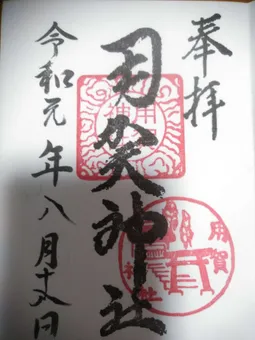 奉拝
用賀神社
令和元年八月十八日
用賀
神社